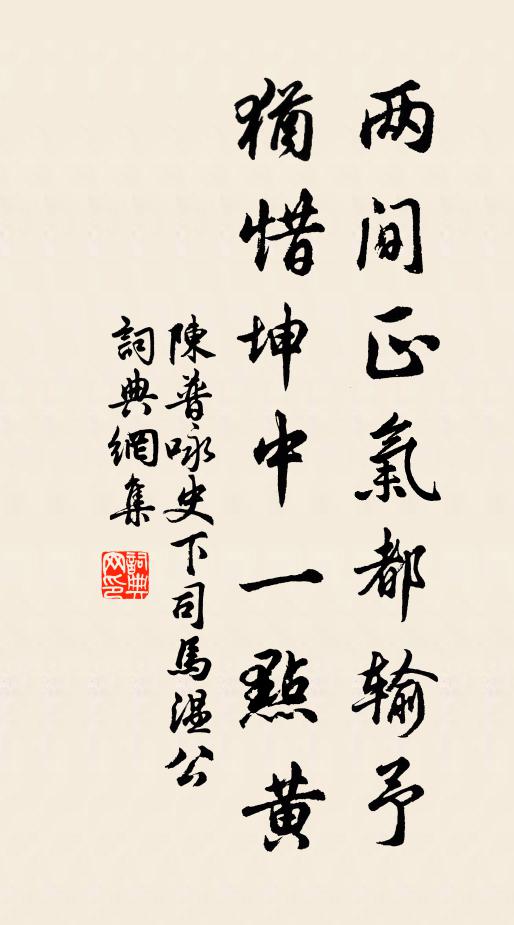 两間正氣都输予
猶惜坤中一點黄
陳普咏史下司馬温公
詞典網集
詞典网印